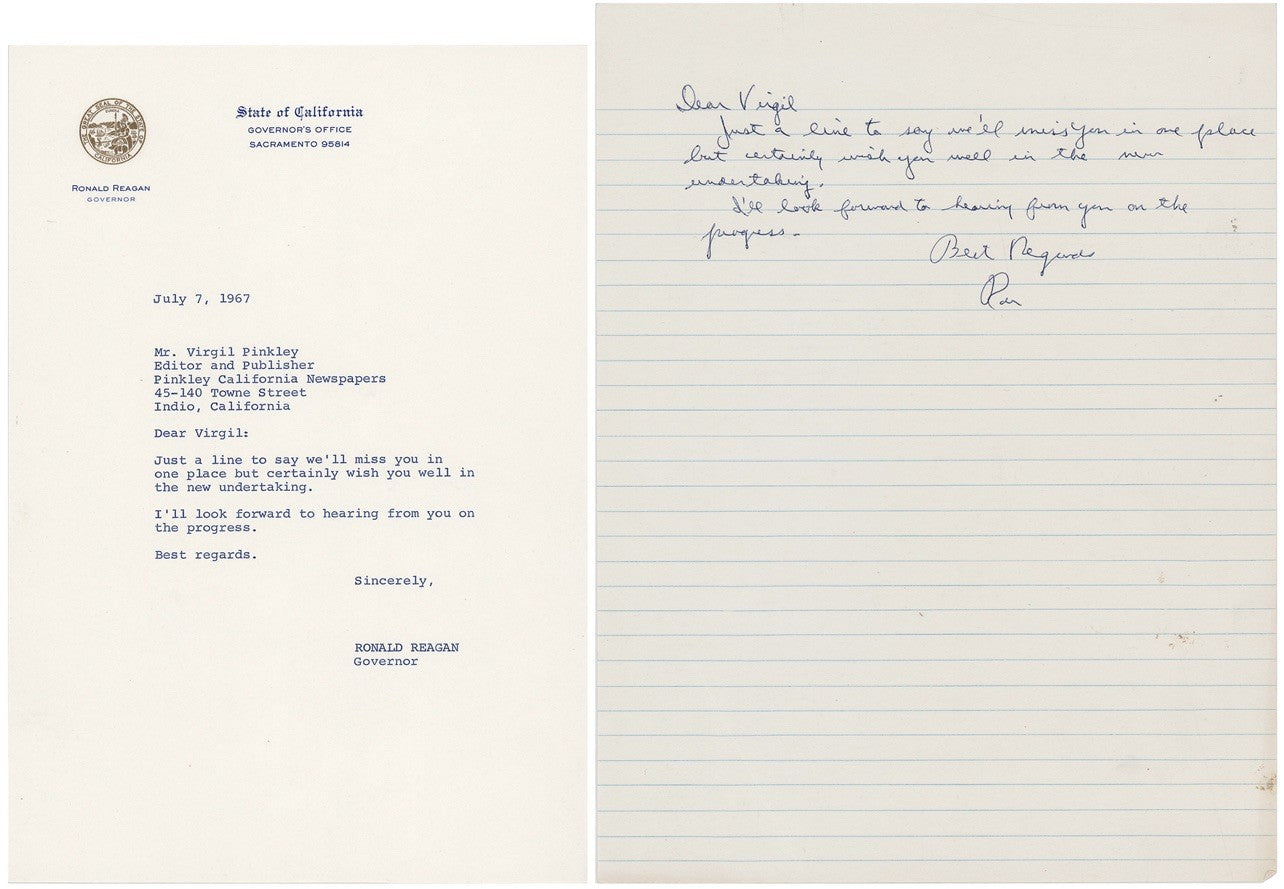 GREAT SEAL OF THE STATE OF CALIFORNIA
EUREKA
State of California
GOVERNOR'S OFFICE
SACRAMENTO 95814
RONALD REAGAN
GOVERNOR
July 7, 1967
Mr. Virgil Pinkley
Editor and Publisher
Pinkley California Newspapers
45-140 Towne Street
Indio, California
Dear Virgil:
Just a line to say we'll miss you in
one place but certainly wish you well in
the new undertaking.
I'll look forward to hearing from you on
the progress.
Best regards.
Sincerely,
RONALD REAGAN
Governor
Dear Virgil
Just a line to say we'll miss you in one place
but certainly wish you well in the new
undertaking.
I'll look forward to hearing from you on the
progress.
Best Regards
Ron